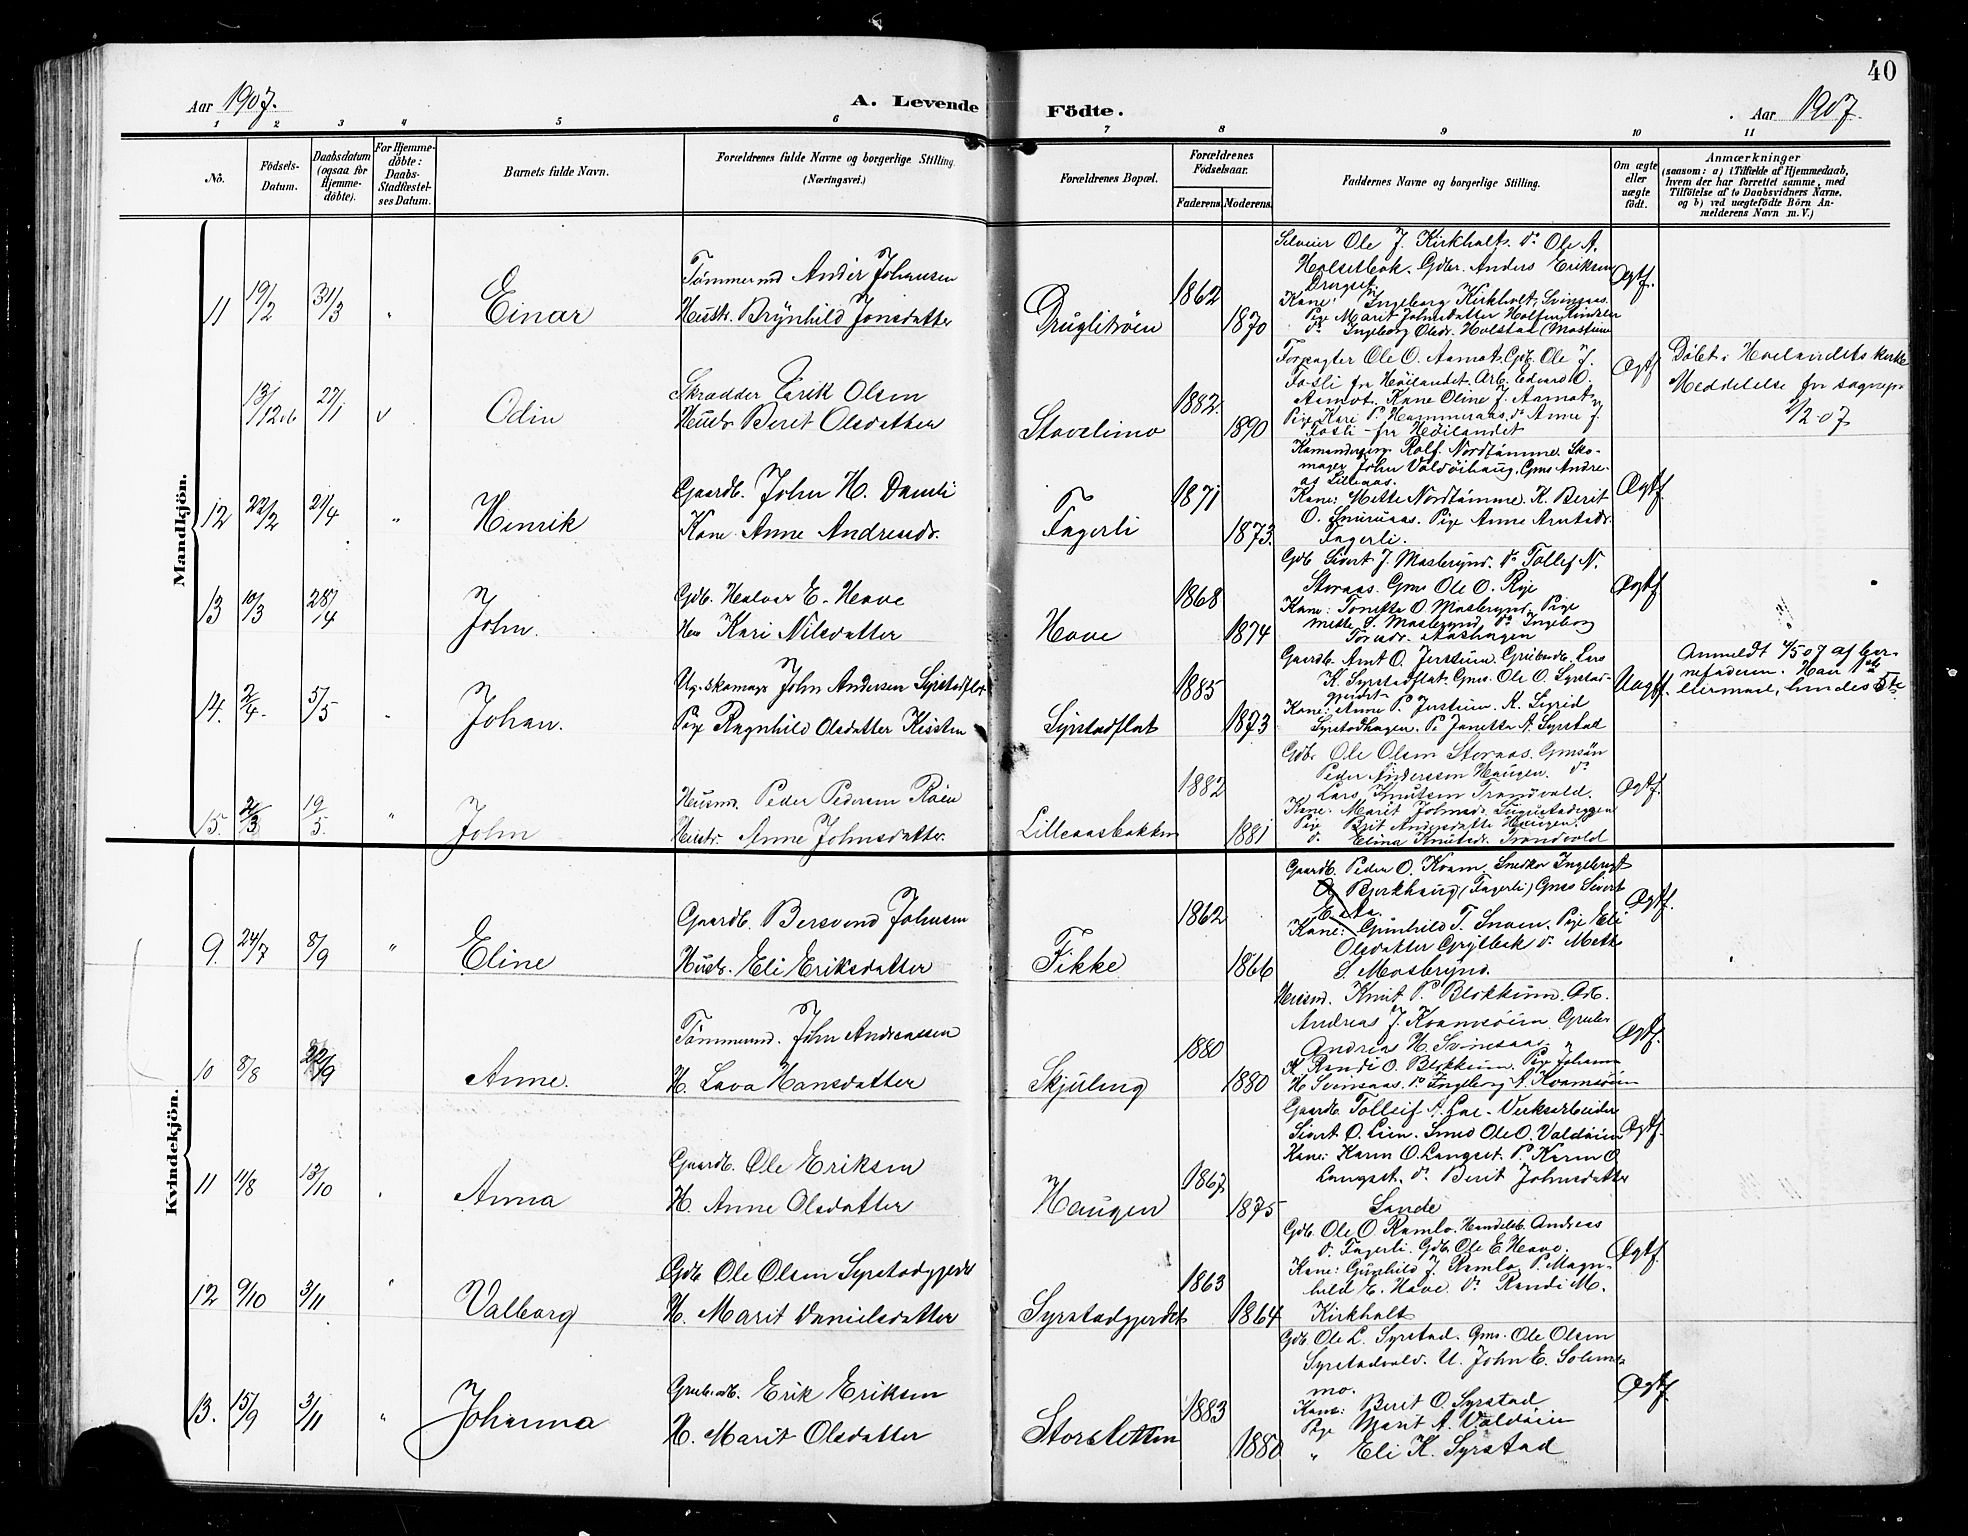 40
Aar 1907.
A. Levende Födte.
Aar 1907.
1 2 3 4 5 6 7 8 9 10 11
No.
Födsels-
Datum.
Daabsdatum
(ogsaa for
Hjemme-
döbte).
For Hjemme-
döbte:
Daabs-
Stadfæstel-
ses Datum.
Barnets fulde Navn.
Forældrenes fulde Navne og borgerlige Stilling.
(Næringsvei.)
Forældrenes Bopæl.
Forældrenes
Födselsaar.
Faderens. Moderens.
Faddernes Navne og borgerlige Stilling.
Om ægte
eller
uægte
födt.
Anmærkninger
(saasom: a) i Tilfælde af Hjemmedaab,
hvem der har forrettet samme, med
Tilföielse af to Daabsvidners Navne.
og b) ved uægtefödte Börn An-
melderens Navn m. V.)
Mandkjön.
11 19/2 31/3 " Einar
Tömmermd Ander Johansen
Hustr. Brynhild Jonsdatter
1862 1870
Ole J. Kirkholt. do Ole A.
Holsetbak. Gdbr. Anders Eriksen
Drugset
Kane: Ingeborg Kirkholt, Svinsaas.
Pige Marit Johnsdatter
do Ingeborg Olsdr. Holstad
Ægtf.
13/12 06 27/1 v Odin
Skrædder Eirik Olsen
Hustr Beret Olsdatter
Stavelimo
1882. 1890
Forpagter Ole O. Aamot. Gdb. Ole J.
Fosli fra Höilandet. Arb. Edvard O.
Aamot. Kane Oline J. Aamot
Pige Kari P. Hammeraas. do Anne J.
Fosli - fra Höilandet
Ægtf
Döbt i Hoilandets kirke
Meddelelse fra sognepr
2/2 07
12 22/2 21/4 " Henrik
Gaardb. John H. Damli
Kane Anne Andreasdr.
Fagerli
1871 1873.
Rolf Nordtömme. Sko-
mager John Valdöihaug, Gms Andre-
as Lilleaas.
Kane: Mette Nordtömme. K. Berit
O. Snuruaas. Pige Anne Arntsdr.
Fagerli.
Ægtf.
13 10/3 28/4 John.
Gdb. Halvar E. Hove
Kari Nilsdatter
Hove
1868 1874
Gdb Sivert J. Mosbrynd. do Tollef N.
Storaas. Gms Ole O. Rye
Kane: Tonetta O. Mosbrynd. Pige
Mette S. Mosbrynd, do Ingeborg
Toresdr. Aashagen
Ægtf
14. 2/4 5/5 " Johan.
Ug. skomagr John Andersen Syrstadflat
Pige Ragnhild Olsdatter Kisten
Syrstadflat
1885 1873
Gaardb. Arnt O. Jerstium. Grubearb. Lars
K. Syrstadflat. Gms. Ole O. Syrstad-
gjerdet
Kane: Anne P. Jerstium. K. Sigrid
Syrstadhagen. P. Janetta A. Syrstad
Uægtf.
Anmeldt 4/5 07 af bar-
nefaderen.
15. 21/3 19/5. " John
Husmd. Peder Pedersen Röen
Hustr. Anne Johnsdatter.
Lilleaasbakken
1882 1881
Gdb. Ole Olsen Storaas. Gmsön
Peder Anderssen Haugen. do
Lars Knutsen Trondvold.
Kane: Marit Johnsdr.
Pige Brit Andersdatter Haugen.
do Elina Knutsdr. Trondvold
Ægtf.
Kvindekjön.
9. 24/7 8/9 " Eline
Gaardb. Bersvend Johnsen
Hustr. Eli Eriksdatter
Fikke
1862 1866
Gaardb. Peder O. Kvam, Snedker Ingebrigt
O. Bjerkhaug (Fagerli) Gms Sivert
Kane: Gunhild T. Snoen. Pige Eli
Olsdatter Grytbak do Mette
S. Mosbrynd.
Ægtf.
10 8/8 22/9 Anne.
Tömmermd. John Andreassen
H. Lava Hansdatter
Skjuling
1880 1880
Husmd. Knut P. Blokkum. Gdb.
Andreas J. Kvamsöien. Grubr
Andreas H. Svinsaas.
K. Randi O. Blokkum. Pige Johanna
H Svinsaas. do Ingeborg A. Kvamsöien
Ægtf.
11 11/8 13/10 " Anna
Gaardb. Ole Eriksen
H. Anne Olsdatter
Haugen
1867 1875
Gaardb. Tolleif A. Lae - Verksarbeider
Sivert O. Lien. Smed Ole O. Valdöien
Kane: Karen O. Langset. P. Karen O
Langset. do Berit Johnsdatter
Sande
Ægtf.
12 9/10 3/11 " Valborg
Gdb Ole Olsen Syrstadgjerdet
H. Marit Danielsdatter
Syrstadgjerdet
1863 1864
Gdb. Ole O Ramlo. Handelsb. Andreas
O. Fagerli. Gdb. Ole E. Hove.
Kane: Gunhild J. Ramlo. P. Magn-
hild E. Hove. do Randi M.
Kirkholt
Ægtf.
13. 15/9 3/11 " Johanna
Grub.arb. Erik Eriksen
H. Marit Olsdatter
Storsletten
1883 1880
Gdb. Ole L. Syrstad. Gms. Ole Olsen
Syrstadvold. U. John E. Solem-
mo.
Kane: Berit O. Syrstad
Pige Marit A. Valdöien
" Eli K. Syrstad
Ægtf.